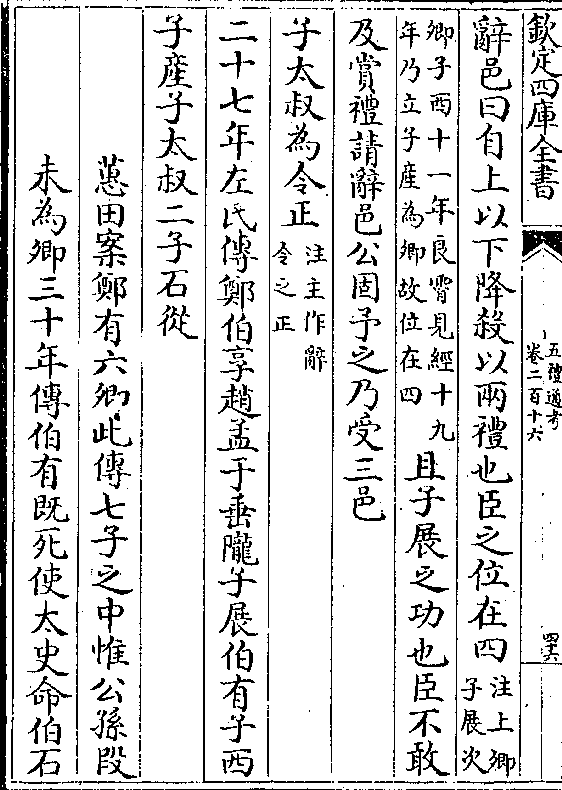 欽定四庫全書
五禮通考
卷二百十六
辭邑曰自上以下降殺以兩禮也臣之位在四注上卿子展次
卿子西十一年良霄見經十九年乃立子產為卿故位在四且子展之功也臣不敢
及賞禮請辭邑公固予之乃受三邑
子太叔為令正注主作辭令之正
二十七年左氏傳鄭伯享趙孟于垂隴子展伯有子西
子產子太叔二子石從
蕙田案鄭有六卿此傳七子之中惟公孫段
未為卿三十年傳伯有既死使太史命伯石